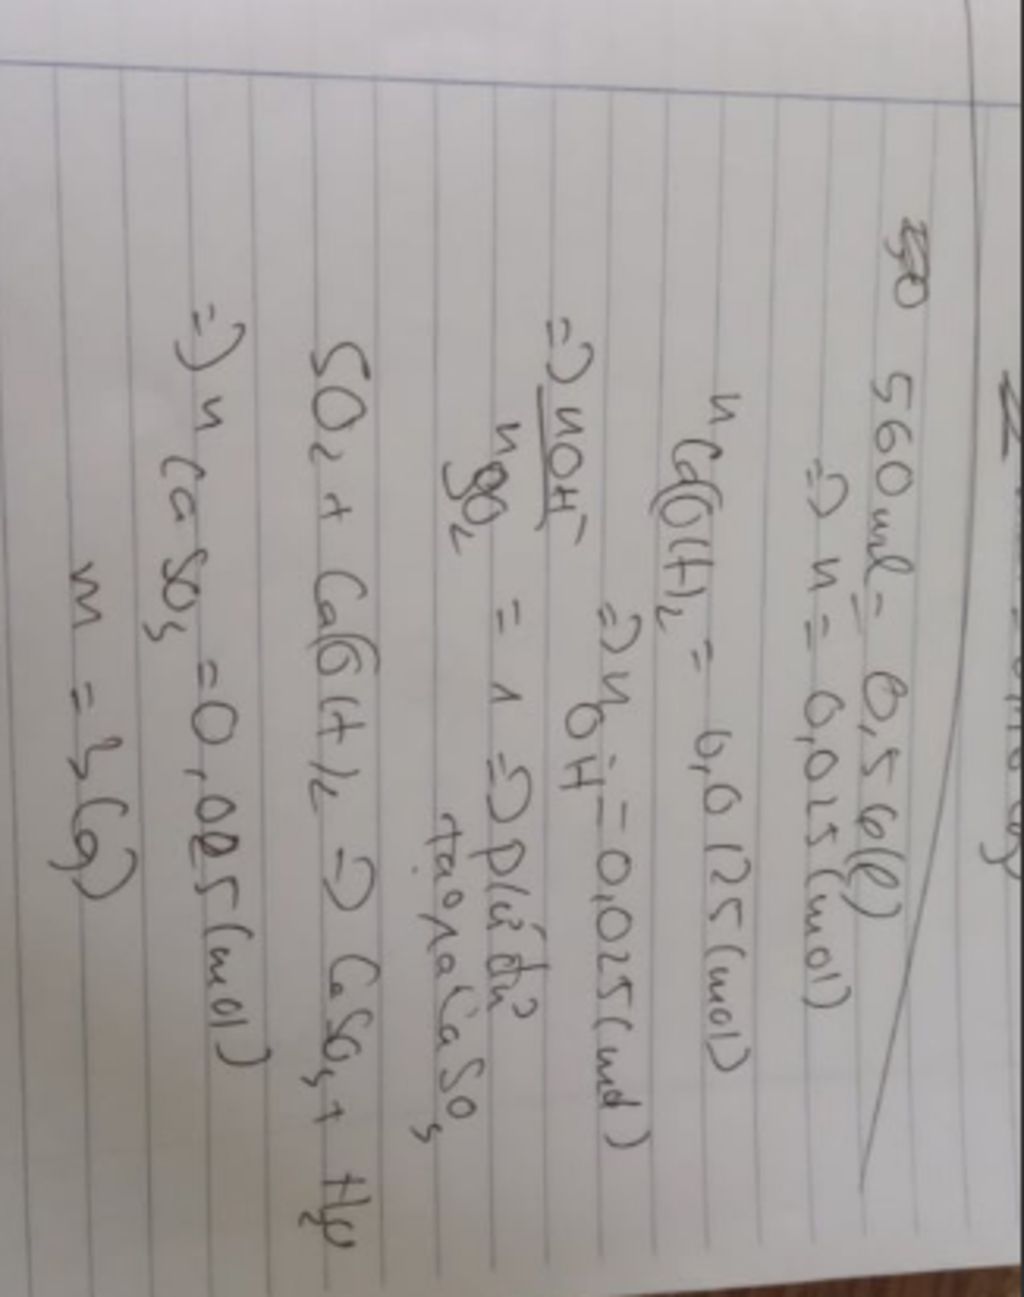 560ml = 0,56(l)
=> n = 0,025(mol)
n Ca(OH)2 = 0,0125(mol)
=> nOH- = 0,025(mol)
=> nOH-
nSO2 = 1 => p/ứ đủ
tạo ra CaSO3
SO2 + Ca(OH)2 => CaSO3 + H2O
=> n CaSO3 = 0,025(mol)
m = 3(g)